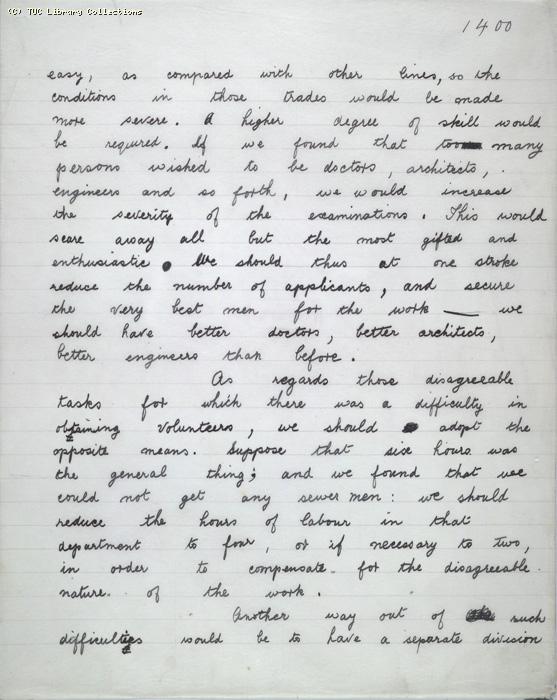 (C) TUC Library Collections
1400
easy, as compared with other lines, so the
conditions in those trades would be made
more severe. A higher degree of skill would
be required. If we found that too many
persons wished to be doctors, architects,
engineers and so forth, we would increase
the severity of the examinations. This would
scare away all but the most gifted and
enthusiastic. We should thus at one stroke
reduce the number of applicants, and secure
the very best men for the work — we
should have better doctors, better architects,
better engineers than before.
As regards those disagreeable
tasks for which there was a difficulty in
obtaining volunteers, we should adopt the
opposite means. Suppose that six hours was
the general thing; and we found that we
could not get any sewer men: we should
reduce the hours of labour in that
department to four, or if necessary to two,
in order to compensate for the disagreeable
nature of the work.
Another way out of such
difficulties would be to have a separate division